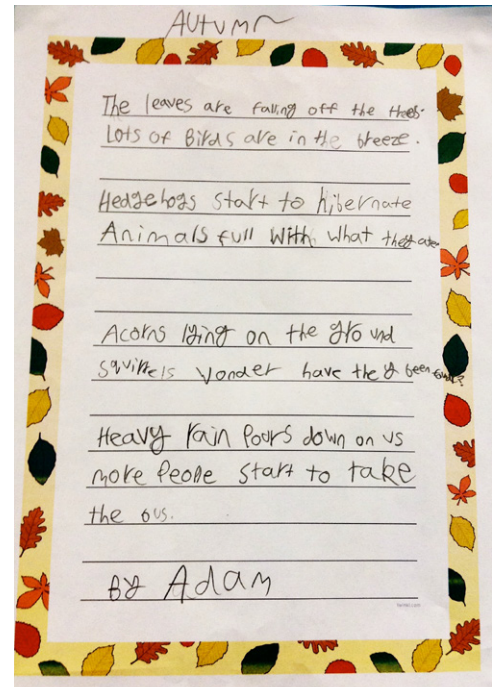 Autumn
The leaves are falling off the trees.
Lots of Birds are in the breeze.
Hedgehogs start to hibernate
Animals full with what they ate
Acorns lying on the ground
Squirrels wonder have they been found?
Heavy rain Pours down on us
more People start to take
the bus.
By Adam